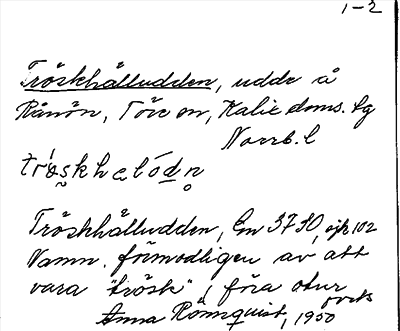 1-2
Tröskhålludden, udde å
Rånön, Töre sn, Kalix doms. lg
Norrb. l
Tröskhålludden, Em 3730, sjk 102
Namn. förmodligen av att
vara "trösk", föra otur
Anna Rönnquist, 1950